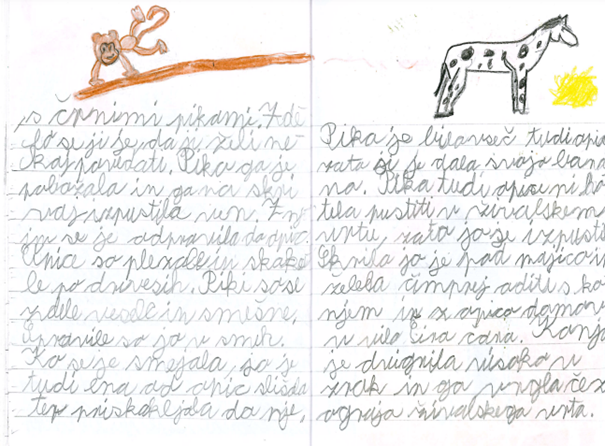 s črnimi pikami. Zdé
lo se ji je, da ji želi ne
kaj povedati. Pika ga je
pobožala in ga na skri
vaj izpustila ven. Z nj
im se je odpravila do opic.
Opice so plezale in skaka
le po drvesih. Piki so se
zdele vesele in smešne,
Spravile so jo v smeh.
Ko se je smejala, jo je
tudi ena od opic slišala
ter priskakljala do nje,
Pika je bila všeč tudi opici
zato ji je dala svojo bana
no. Pika tudi opice ni ho
tela pustiti v živalskem
vrtu, zato jo je izpusti
Skrila jo je pod majico in
zelela čimprej oditi s ko
njem in z opico domov
v vilo Čira čara. Konja
je dvignila visoko v
zrak in ga vrgla čez
ograjo živalskega vrta.